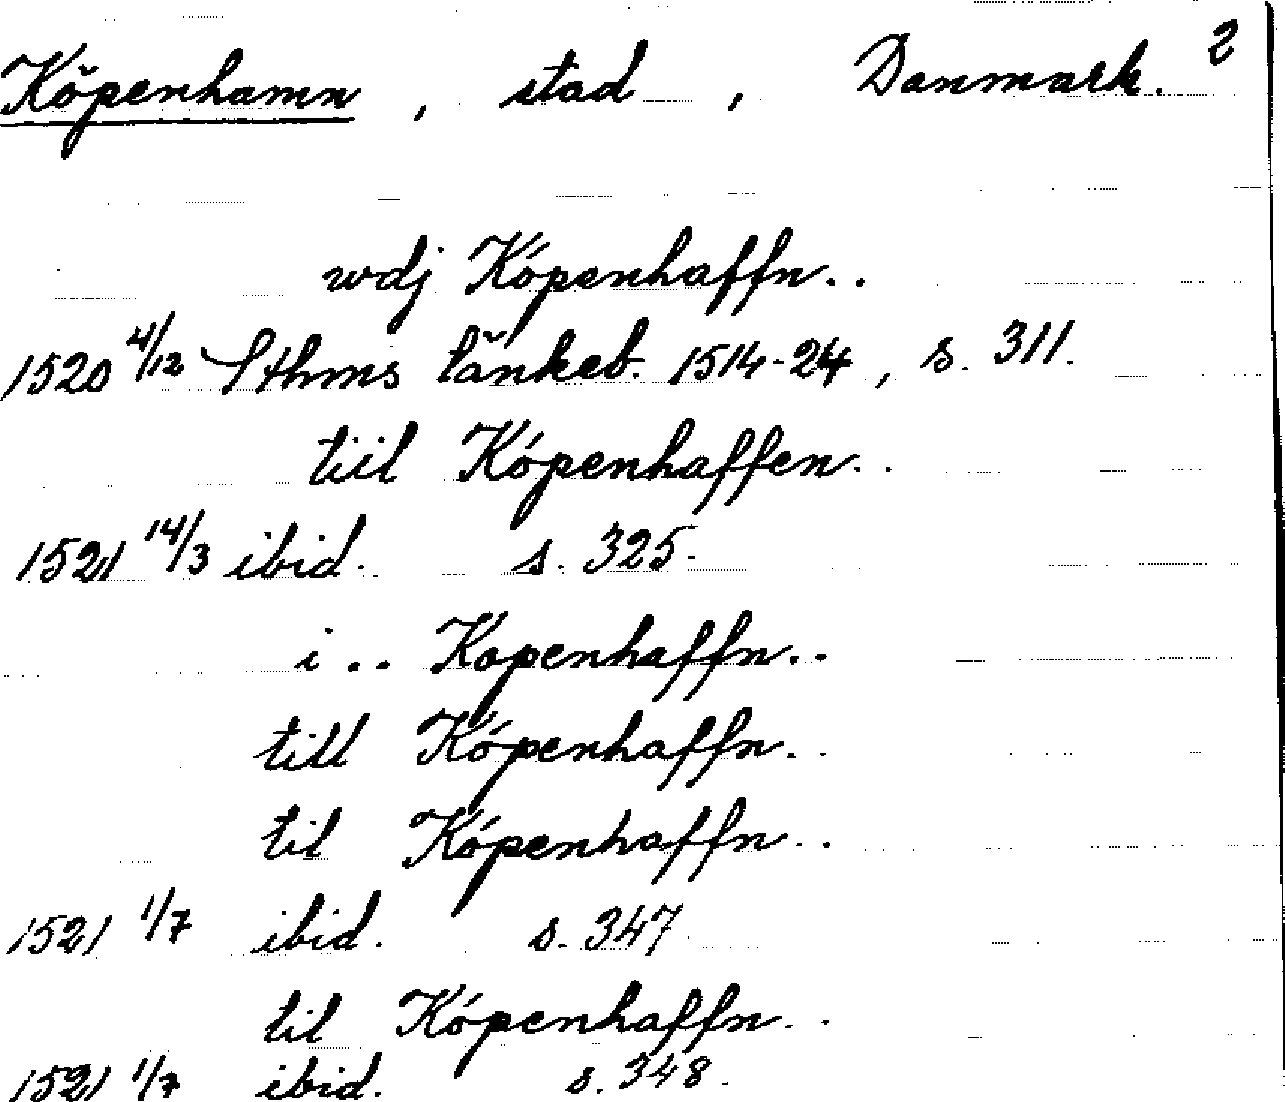 Köpenhamn, stad, Danmark. 2
wdj Kópenhaffn..
1520 4/12 Sthms tänkeb. 1514-24, s. 311.
tiil Kópenhaffen..
1521 14/3 ibid. s. 325.
i.. Kopenhaffn..
till Kópenhaffn..
til Kópenhaffn..
1521 1/7 ibid. s. 347
til Kópenhaffn..
1521 1/7 ibid. s. 348.